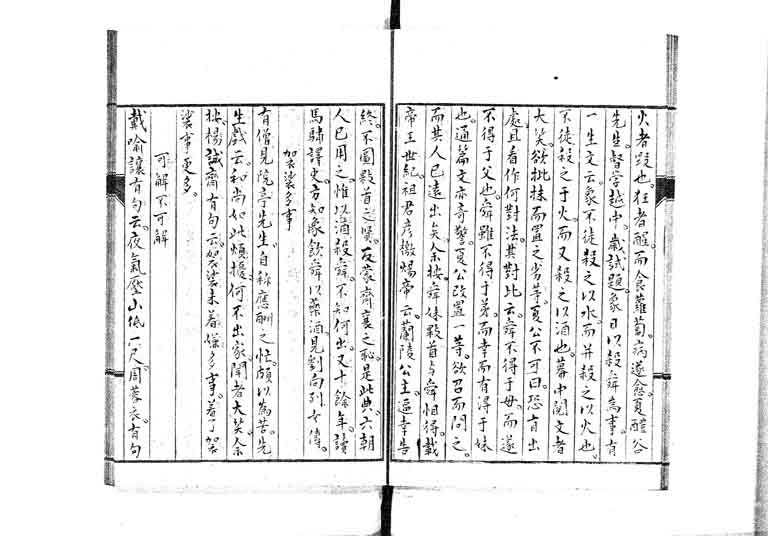 火者毀也。狂者醒。而食蘿蔔。病遂愈。夏醴谷
先生。督學越中。歲試題。象日以殺舜為事。有
一生文云。象不徒殺之以水。而并殺之以火也。
不徒殺之于火。而又殺之以酒也。幕中閱文者
大笑。欲批抹而置之劣等。夏公不可。曰。恐有出
處。且看作何對法。其對比云。舜不得于母。而遂
不得于父也。舜雖不得于弟。而幸而有得于妹
也。通篇文亦奇警。夏公改置一等。欲召而問之。
而其人已遠出矣。余按舜妹敤首。與舜相得。載
帝王世紀。祖君彥檄煬帝。云。蘭陵公主。逼幸告
終。不圖敤首之賢。反蒙齊襄之恥。是此典。六朝
人已用之。惟以酒殺舜。不知何出。又十餘年。讀
馬驌繹史。方知象飲舜以藥酒。見劉向列女傳。
袈裟多事
有僧見阮亭先生。自稱應酬之忙。頗以為苦。先
生戲云。和尚如此煩擾。何不出家。聞者大笑。余
按楊誠齋有句云。袈裟未著嫌多事。著了袈
裟事更多。
可解不可解
戴喻讓有句云。夜氣壓山低一尺。周蓉衣有句